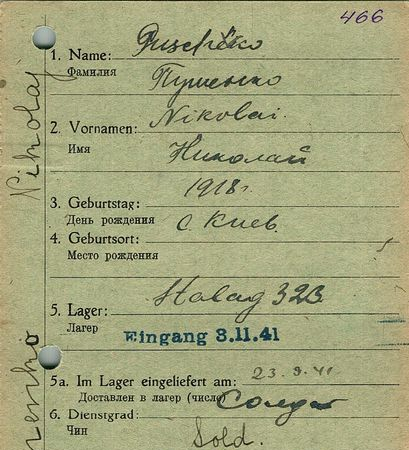 466
1. Name:
Фамилия
Пушенко
2. Vornamen: Nikolai.
Имя
Николай
1918 г.
3. Geburtstag:
День рождения
с. Киев.
4. Geburtsort:
Место рождения
5. Lager: Stalag
Лагер
Eingang 3.11.41
5a. Im Lager eingeliefert am: 23.9.41
Доставлен в лагер (число)
6. Dienstgrad: Солдат
Чин
Sold.
Nikolaj